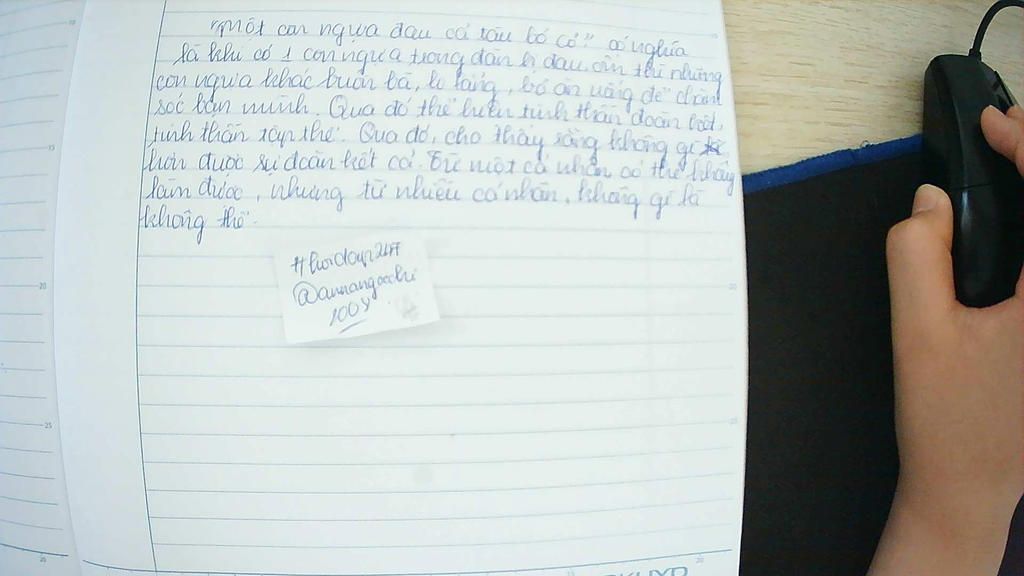 "Một con ngựa đau cả tàu bỏ cỏ" có nghĩa
là khi có 1 con ngựa trong đàn bị đau ốm thì những
con ngựa khác buồn bã, lo lắng, bỏ ăn uống để chăm
sóc bạn mình. Qua đó thể hiện tinh thần đoàn kết,
tinh thần tập thể. Qua đó, cho thấy rằng không gì
hơn được sự đoàn kết cả. Từ một cá nhân có thể không
làm được, nhưng từ nhiều cá nhân, không gì là
không thể.
#hoidap247